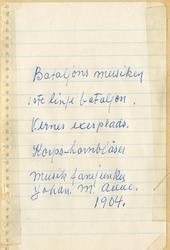 Bataljons musiken
1ste linje bataljon.
Værnes exerplads.
Korps-hornblåser
Musik fanejunker
Johan M Aune.
1904.